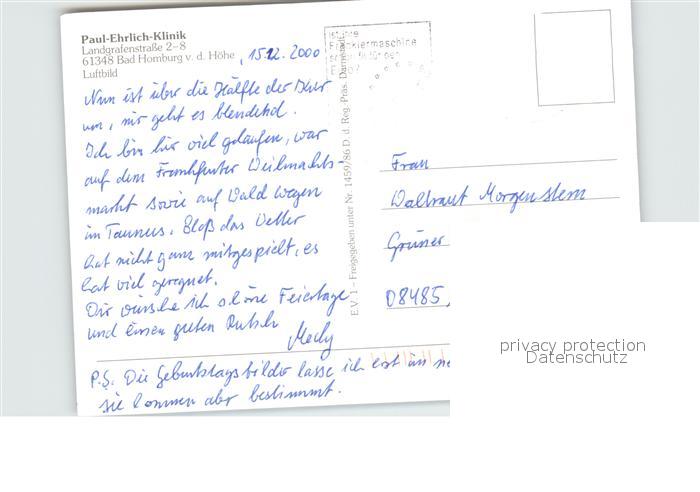 Paul-Ehrlich-Klinik
Landgrafenstraße 2–8
61348 Bad Homburg v. d. Höhe
Luftbild
, 15.12.2000
Nun ist über die Hälfte der Kur
um, mir geht es blendend.
Ich bin hier viel gelaufen, war
auf dem Frankfurter Weihnachts-
markt sowie auf Wald wegen
im Taunus. Bloß das Wetter
hat nicht ganz mitgespielt, es
hat viel geregnet.
Dir wünsche ich schöne Feiertage
und einen guten Rutsch
P.S. Die Geburtstagsbilder lasse ich erst im
sie kommen aber bestimmt.
E.V. 1 – Freigegeben unter Nr. 1459/86 D. d. Reg.-Präs. Darmstadt
Frankiermaschine
Frau
Waltraut Morgenstern
Grüner
08485,
privacy protection
Datenschutz